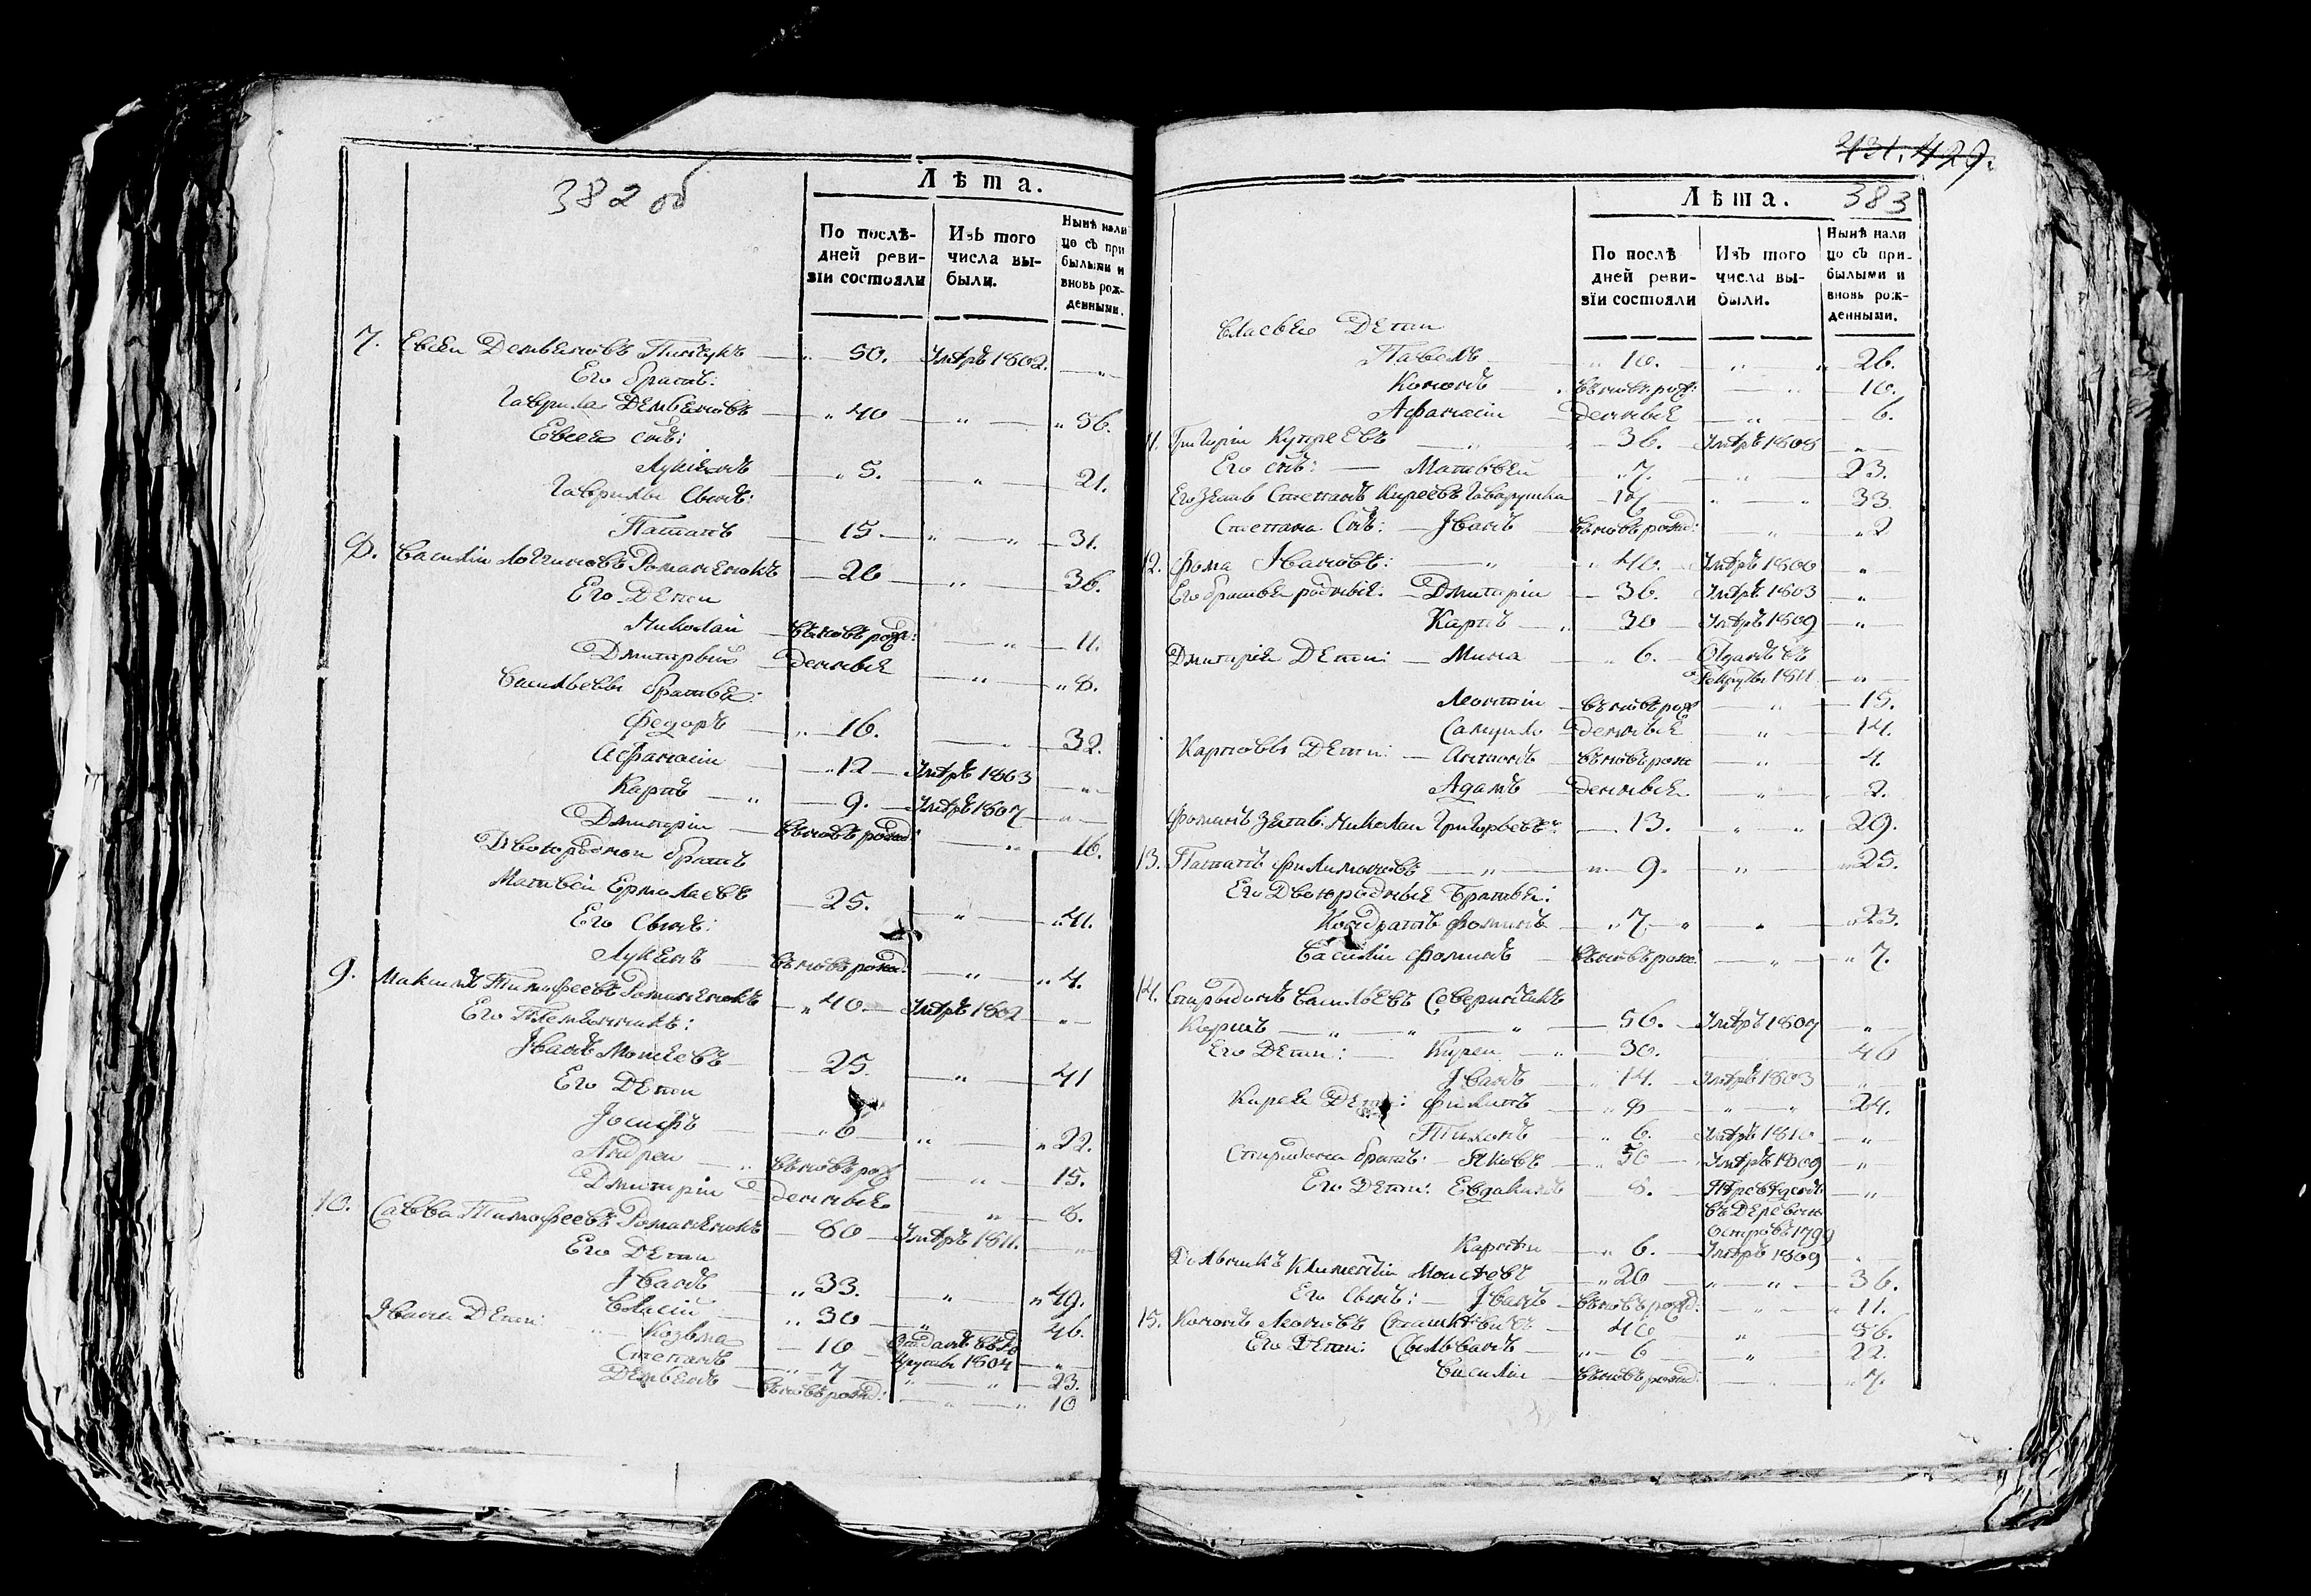 382 об
Лѣта.
По послѣ-
дней реви-
зіи состояли
Изъ того
числа вы-
были.
Нынѣ нали
цо съ при
былыми и
вновь рож-
денными.
7. Евсей Демьяновъ Пинчукъ — 50. Умѣръ 1802. — „
Его братъ:
Гаврила Демьяновъ — „ 40 — „ — „ 56.
Евсея сынъ:
Лукіянъ — „ 5. — „ — 21.
Гаврилы Сынъ:
Патапъ — 15 — „ — „ — 31.
8. Василіи Логиновъ Романенокъ — 20 — „ — 36.
Его Дети
Николай — вновь рож: — „ — 11.
Дмитрый — денные — „ — „ 8.
Васильевы братья:
Федоръ — „ 16. — „ — 32.
Афанасіи — „ 12 — Умѣръ 1803 — „
Карпъ — „ — 9. — Умѣръ 1807 — „
Дмитріи — вновь рожд: — „ — 16.
Двоюродной братъ
Матвеи Ермолаевъ — 25. — „ — „ 41.
Его Сынъ:
Лукянъ — вновь рожд: — „ — „ 4.
9. Максимъ Тимофеевъ Романенокъ — „ 40 — Умѣръ 1802 — „
Его Племянникъ:
Іванъ Моисеевъ — 25. — „ — 41
Его Дети
Іосифъ — „ 6 — „ — „ 22.
Андреи — „ вновь рож — „ — 15.
Дмитріи — денные — „ — 8.
10. Савва Тимофеевъ Романенокъ — 80 — Умѣръ 1811. — „
Его Дети
Іванъ — „ 33. — „ — „ 49.
Власій — „ 30 — „ — 46.
Івана Дети: „ Козьма — 10 — Отданъ въ ре
круты 1804 — „
Степанъ — „ 7 — „ — „ — 23.
Демьянъ — вновь рожд: — „ — „ 10
431. 429.
Лѣта.
383
По послѣ
дней реви-
зіи состояли
Изъ того
числа вы-
были.
Нынѣ нали
цо съ при-
былыми и
вновь рож-
денными.
Власьея Дети
Павелъ — „ 10. — „ — „ 26.
Кононъ — вновь рож: — „ — 10.
Афанасіи — денные — „ — 6.
11. Григоріи Купреевъ — „ — „ 36. — Умѣръ 1808 — „
Его сынъ: — Матвѣей — „ 7. — „ — 23.
Его зять Степанъ Киреевъ — 17 — „ — „ 33
Степана Сынъ: — Іванъ — вновь рожд: — „ — „ 2
12. Фома Івановъ: — „ — „ 40. — Умѣръ 1800 — „
Его братья родные: — Дмитріи — 36. — Умѣръ 1803 — „
Карпъ — „ 30 — Умѣръ 1809 — „
Дмитрія Дети: — Мина — „ 6. — Отданъ въ
Рекруты 1811 — „
Леонтіи — вновь рож — „ — 15.
Самуило — денные — „ — 14.
Карповы Дети: — Антонъ — вновь рож — „ — 4.
Адамъ — денные — „ — 2.
Фоминъ зять: Николаи Григорьевъ — 13. — „ — „ 29.
13. Патапъ Филимоновъ — „ — „ 9. — „ — „ 25.
Его Двоюродные Братья:
Кондратъ Фоминъ — „ 7. — „ — „ 23.
Василіи Фоминъ — вновь рож: — „ — „ 7.
14. Спирыдонъ Васильевъ
— „ — „ — „ — 56. — Умѣръ 1807 — „
Его Дети: — Киреи — „ 30. — 46
Іванъ — „ 14. — Умѣръ 1803 — „
Кирея Дети: Филипъ — „ 8 — „ — „ 24.
Тихонъ — „ 6. — Умѣръ 1810 — „
Спиридона братъ: — Яковъ — „ 50 — Умѣръ 1809 — „
Его Дети: Евдакимъ — 8. — Переведенъ — „
въ Деревню
Островъ 1799
Карнѣи — „ 6. — Умѣръ 1809 — „
Дольникъ Климентіи Моисѣевъ — „ 20 — „ — „ 36.
Его Сынъ: — Іванъ — вновь рожд: — „ — „ 11.
15. Кононъ Леоновъ — 40 — „ — 56.
Его Дети: Сыльванъ — „ 6 — „ — 22.
Василіи — вновь рожд: — „ 7.